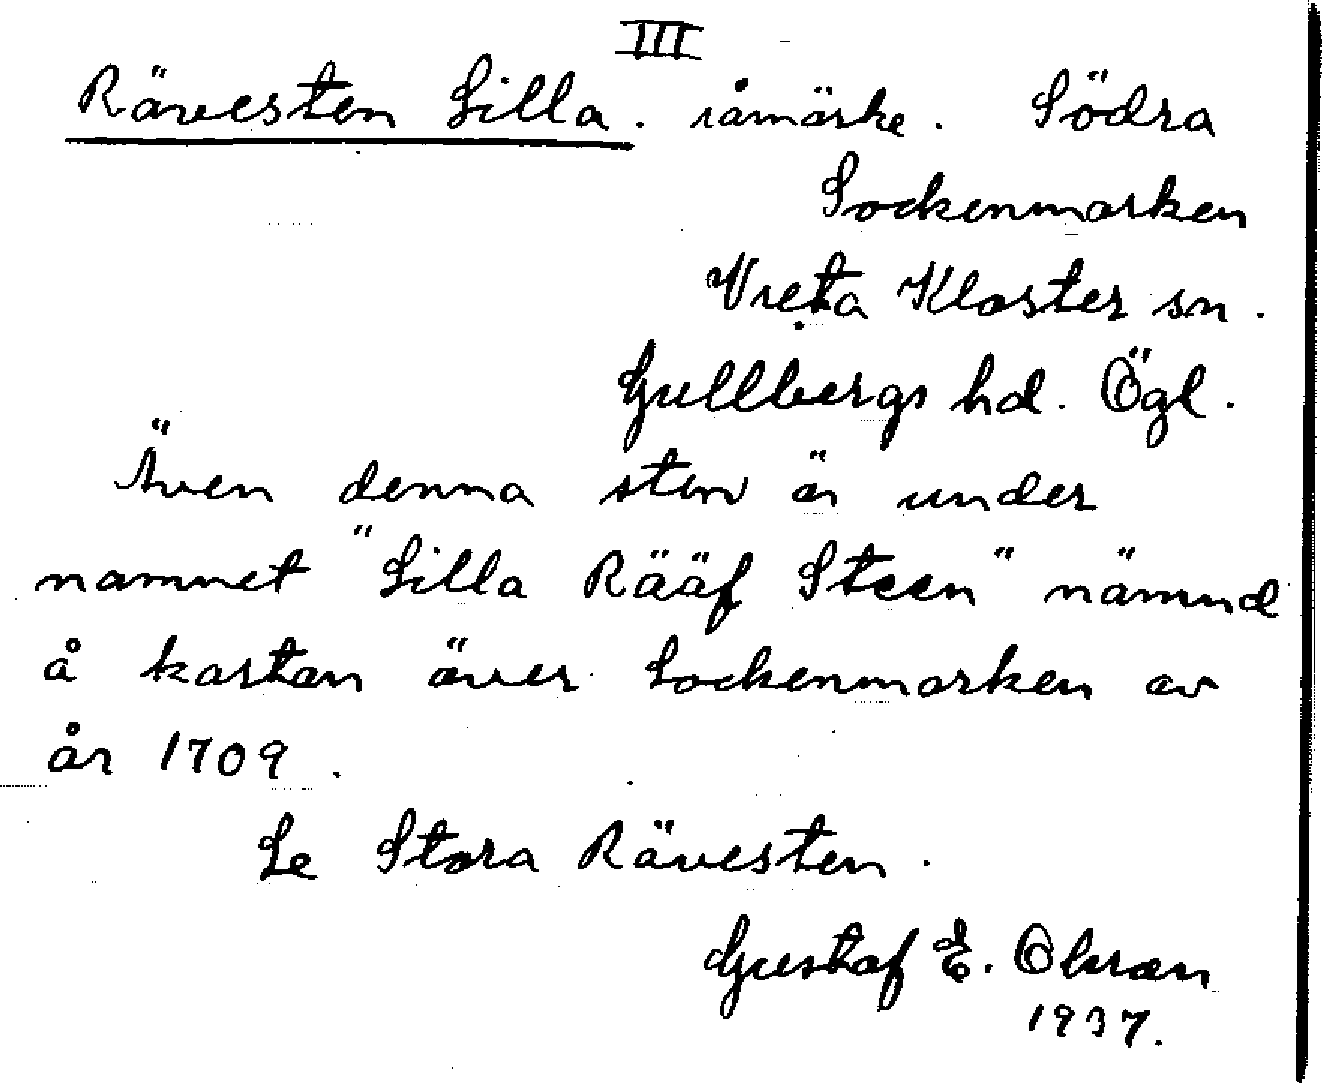 III
Rävesten Lilla. råmärke. Södra
Sockenmarken
Vreta Kloster sn.
Gullbergs hd. Ögl.
Även denna sten är under
namnet "Lilla Rääf Steen" nämnd
å kartan över Sockenmarken av
år 1709.
Se Stora Rävesten.
Gustaf E. Olsson
1937.